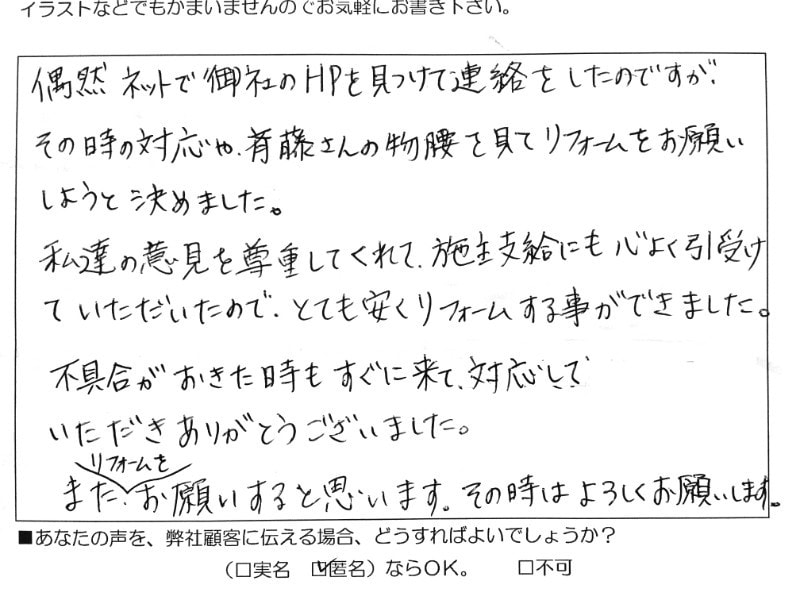 イラストなどでもかまいませんのでお気軽にお書き下さい。
偶然 ネットで御社のHPを見つけて連絡をしたのですが、
その時の対応や、斉藤さんの物腰を見てリフォームをお願い
しようと決めました。
私達の意見を尊重してくれて、施主支給にも心よく引受け
ていただいたので、とても安くリフォームする事ができました。
不具合がおきた時もすぐに来て、対応して
いただきありがとうございました。
リフォームを
また、お願いすると思います。その時はよろしくお願いします。
■あなたの声を、弊社顧客に伝える場合、どうすればよいでしょうか？
（□実名 ☑匿名）ならOK。 □不可